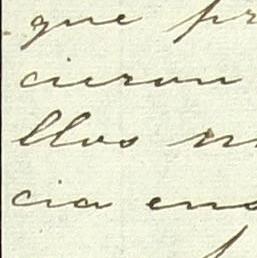 que pr
cieron
llos m
cia ens